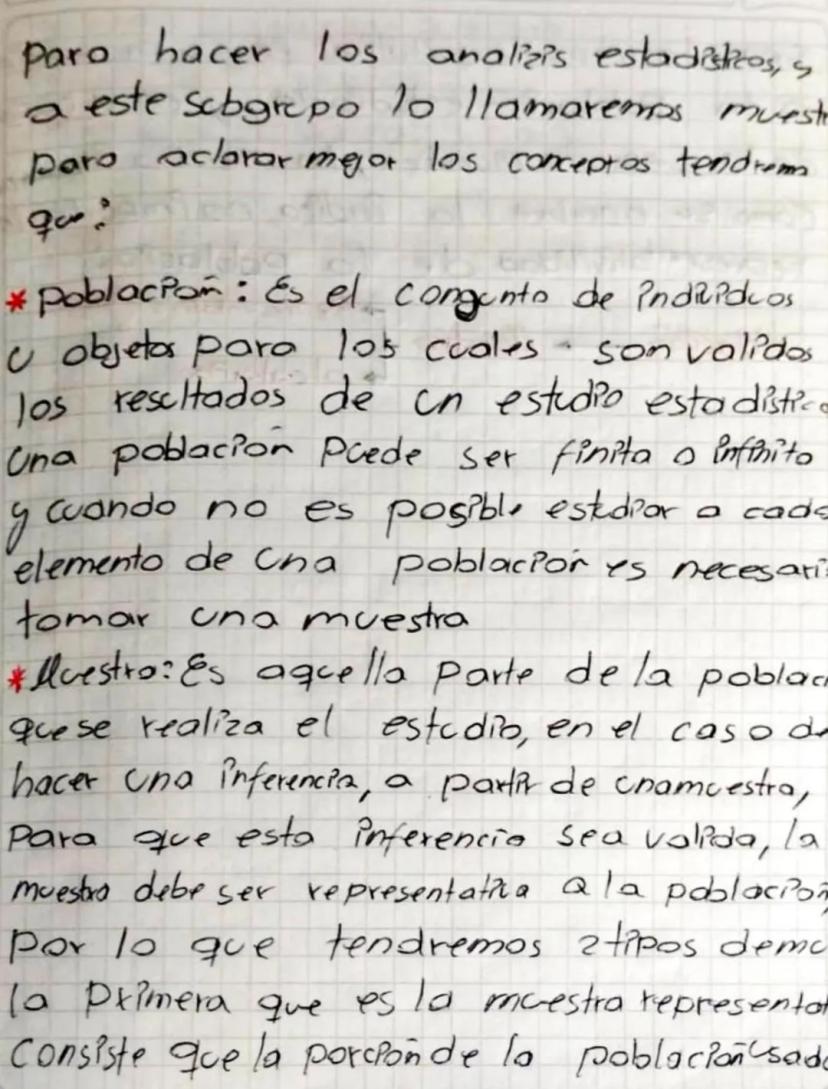 para hacer los analizis estadisticos, y
a este subgrupo lo llamaremos muest
para aclarar mejor los conceptos tendrem
que:
* población: Es el conjunto de individuos
u objetos para los cuales son validos
los resultados de un estudio estadistico
una población puede ser finita o infinita
y cuando no es posible estudiar a cada
elemento de una población es necesari
tomar una muestra
* Muestra: Es aquella parte de la poblac
que se realiza el estudio, en el caso de
hacer una inferencia, a partir de una muestra,
para que esta inferencia sea valida, la
muestra debe ser representativa a la población
por lo que tendremos 2 tipos de mu
la primera que es la muestra representat
Consiste que la porción de la población usada